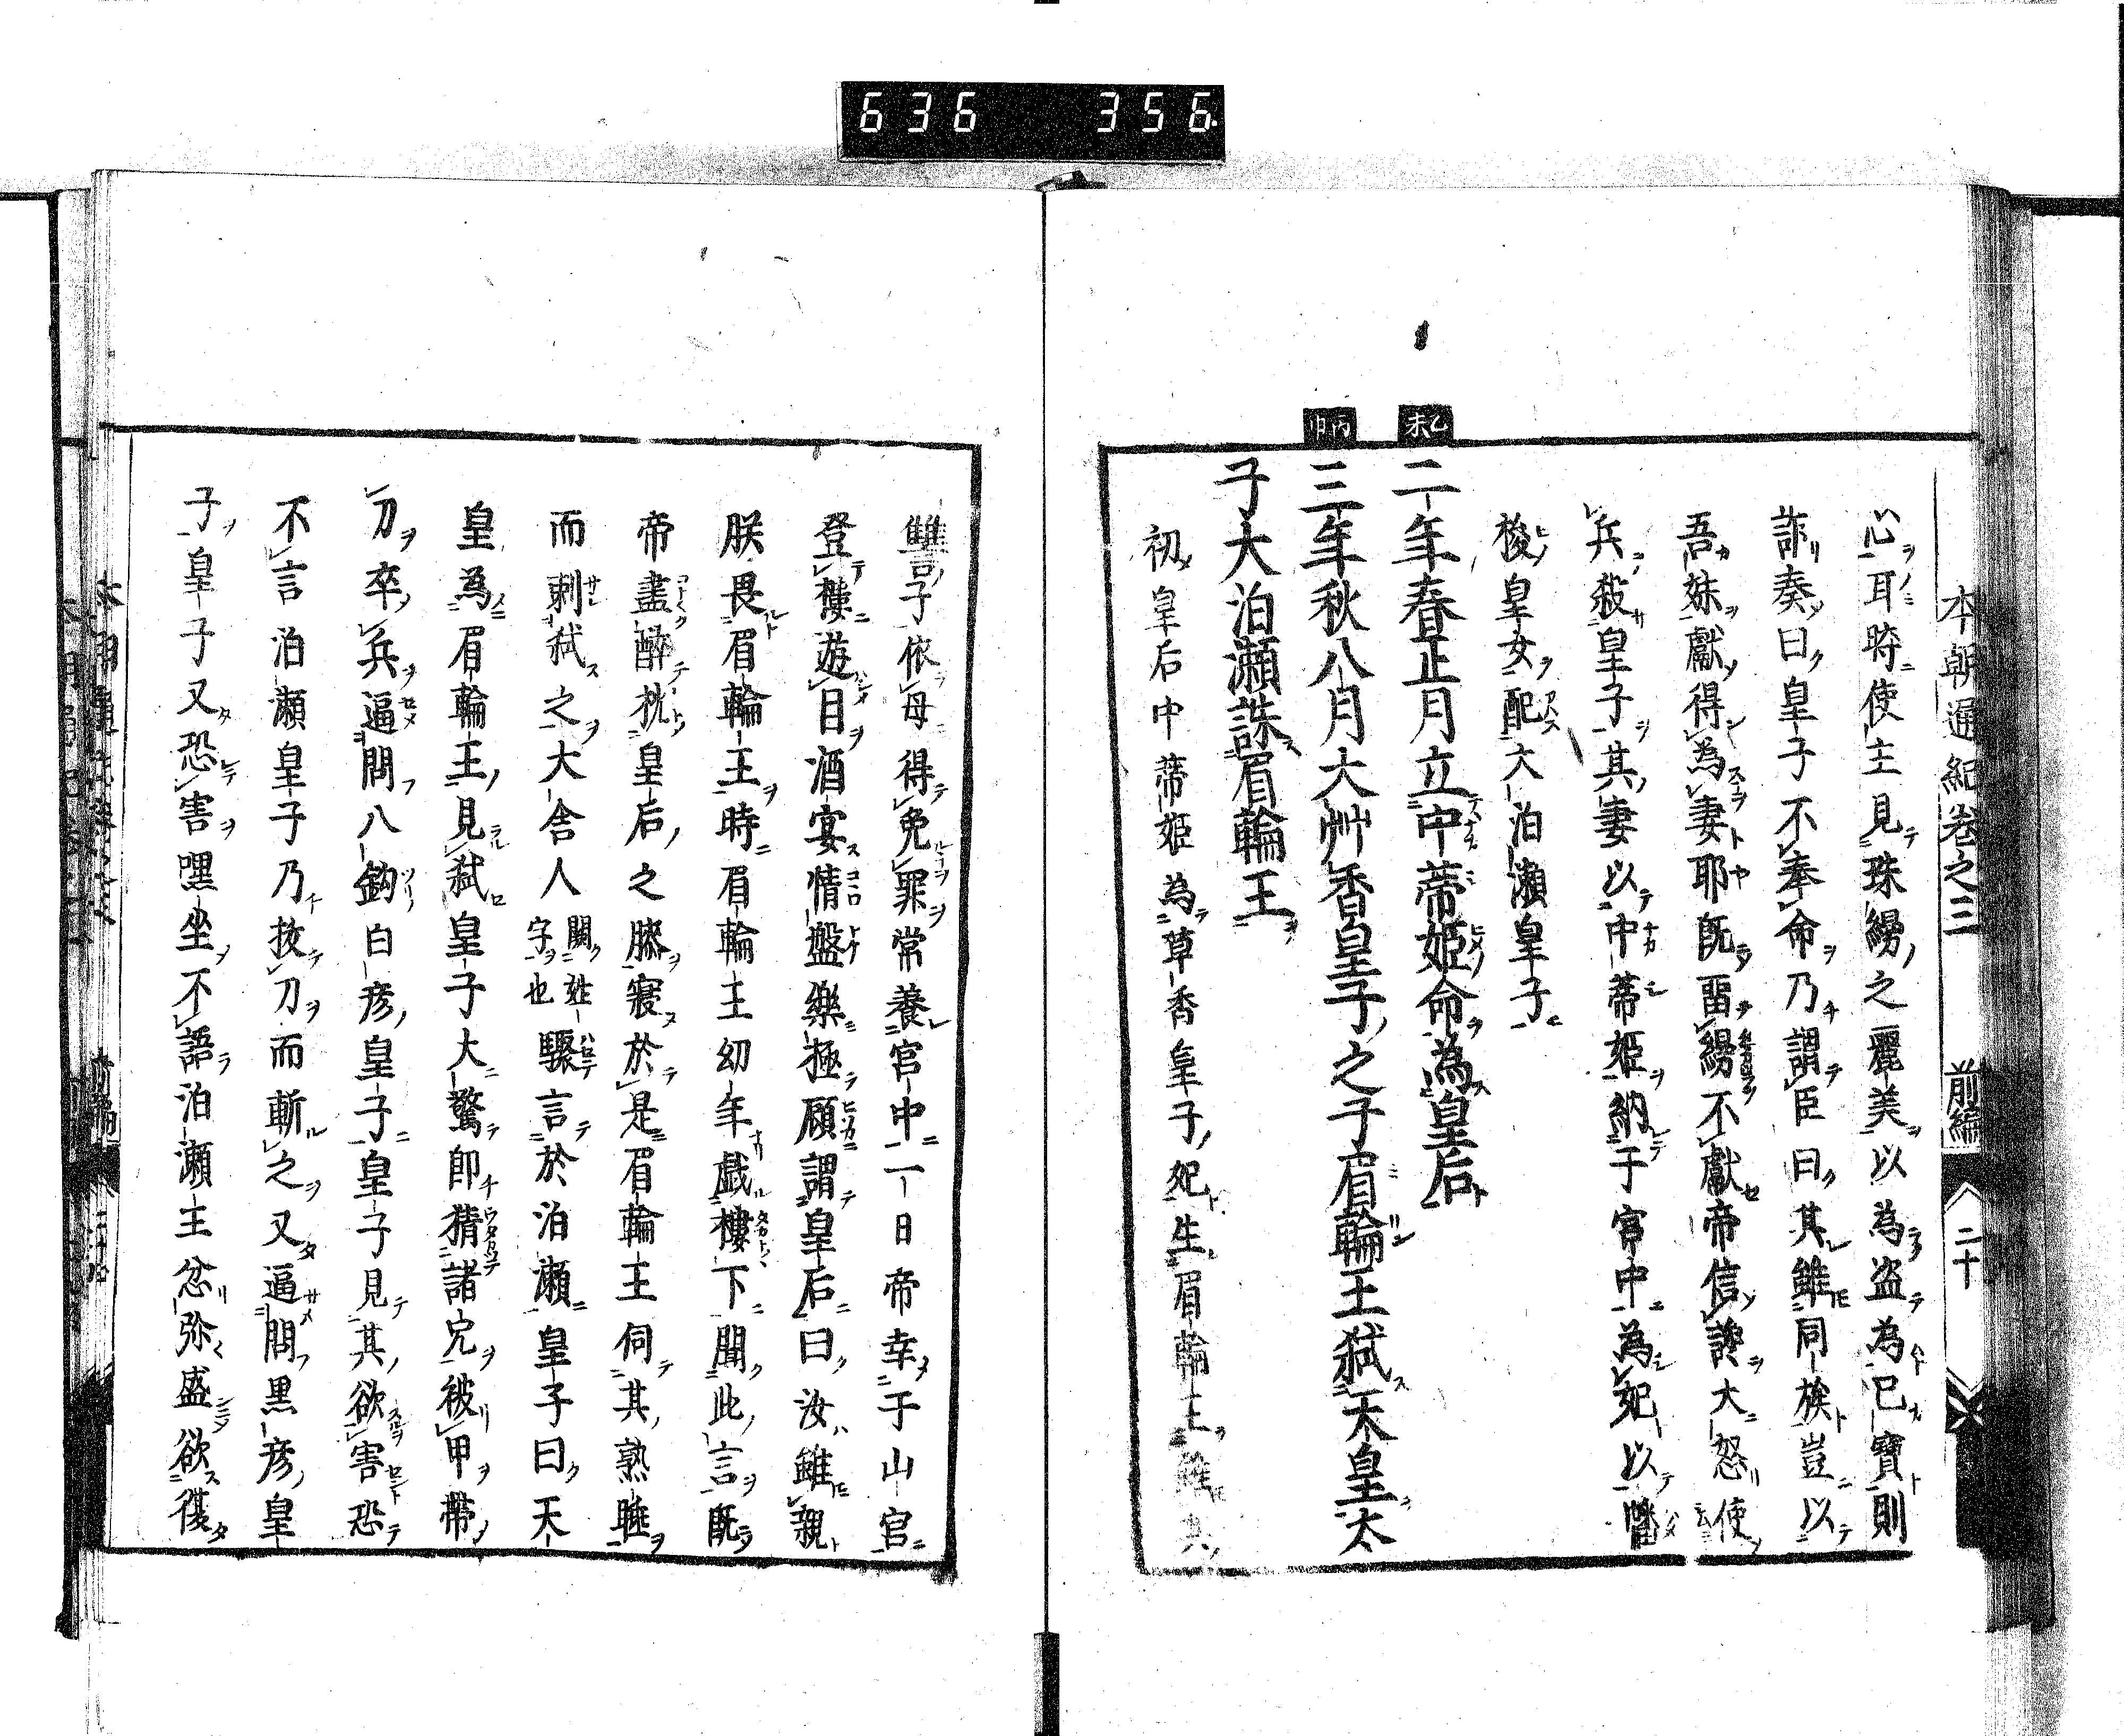 636 356
本朝通紀卷之三 前編 二十
心耳時使主見珠縵之麗美以為盗為己寶則
詐奏曰皇子不奉命乃謂臣曰其雖同族豈以
吾妹獻得為妻耶既留縵不獻帝信讒大怒使
兵殺皇子其妻以中蒂姬納于宮中為妃以幡
梭皇女配大泊瀬皇子
乙未
二年春正月立中蒂姬命為皇后
丙申
三年秋八月大艸香皇子之子眉輪王弑天皇太
子大泊瀬誅眉輪王
初皇后中蒂姬為草香皇子妃生眉輪王雖其
讐子依母得免罪常養宮中一日帝幸于山宮
登樓遊目酒宴情盤樂極顧謂皇后曰汝雖親
朕畏眉輪王時眉輪王幼年戲樓下聞此言既
帝盡醉枕皇后之膝寢於是眉輪王伺其熟睡
而刺弑之大舍人闕姓字也驟言於泊瀬皇子曰天
皇為眉輪王見弑皇子大驚即猜諸兄被甲帶
刀卒兵逼問八鈎白彦皇子皇子見其欲害恐
不言泊瀬皇子乃拔刀而斬之又逼問黒彦皇
子皇子又恐害嘿坐不語泊瀬王忿弥盛欲復